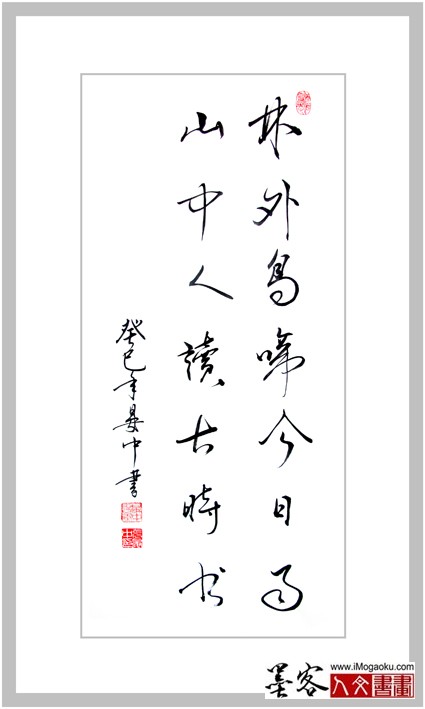 林外鳥啼今日事
山中人讀古時书
癸巳年晏中書
墨客
www.iMogaoku.com
人文書畫